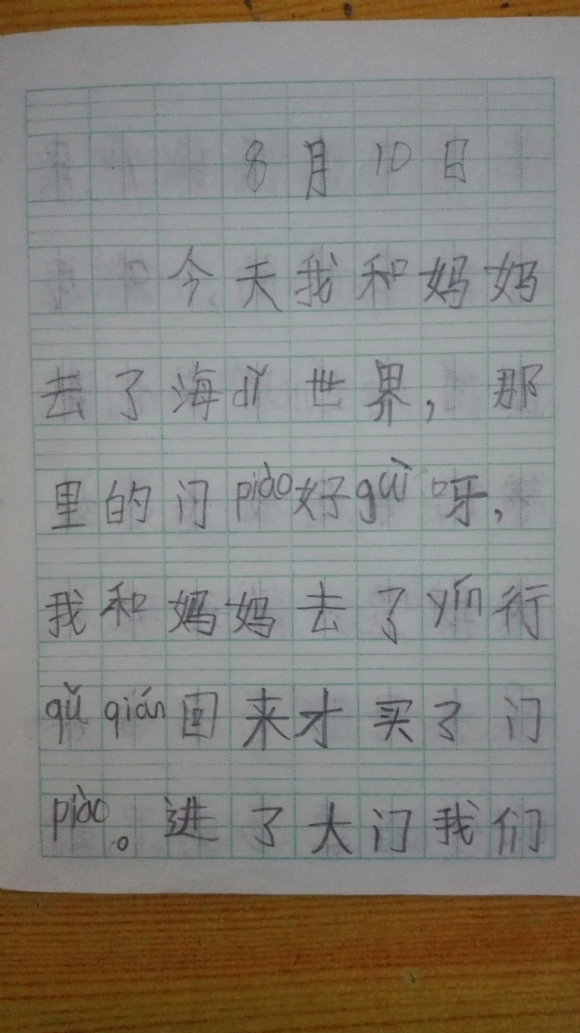 8月10日
今天我和妈妈
去了海dǐ世界，那
里的门piào好guì呀，
我和妈妈去了yín行
qǔ qián回来才买了门
piào。进了大门我们